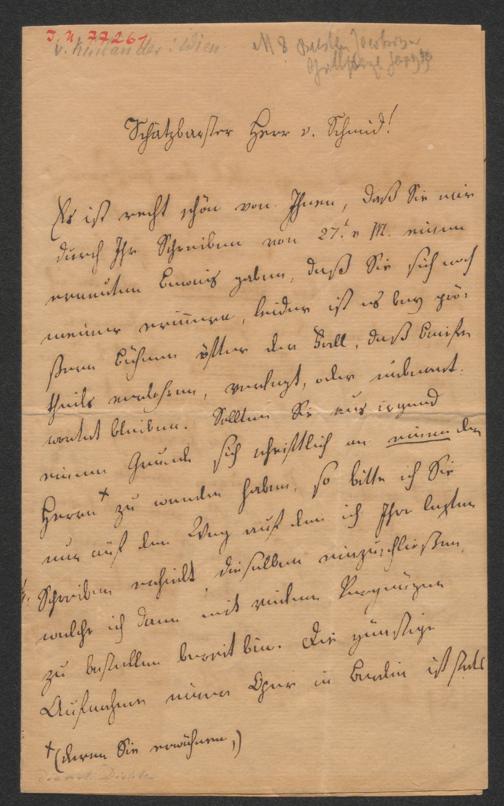 I. N. 77261
Schätzbarster Herr v. Schmid!
Es ist recht schön von Ihnen, daß Sie mir
durch Ihr Schreiben von 27t. v M. einen
erneuten Beweis gaben, daß Sie sich noch
meiner erinnern, leider ist es bey grö-
ßern Bühnen öfter der Fall, daß Briefe
theils verlohren, verlegt, oder unbeant-
wortet bleiben. Sollten Sie aus irgend
einem Grunde sich schriftlich an einen der
Herrn + zu wenden haben, so bitte ich Sie
nur auf dem Weg auf dem ich Ihr letztes
Schreiben erhielt, dieselben einzuschließen,
welche ich dann mit vielem Vergnügen
zu bestellen bereit bin. Die günstige
Aufnahme einer Oper in Berlin ist stets
+ (deren Sie erwähnen,)